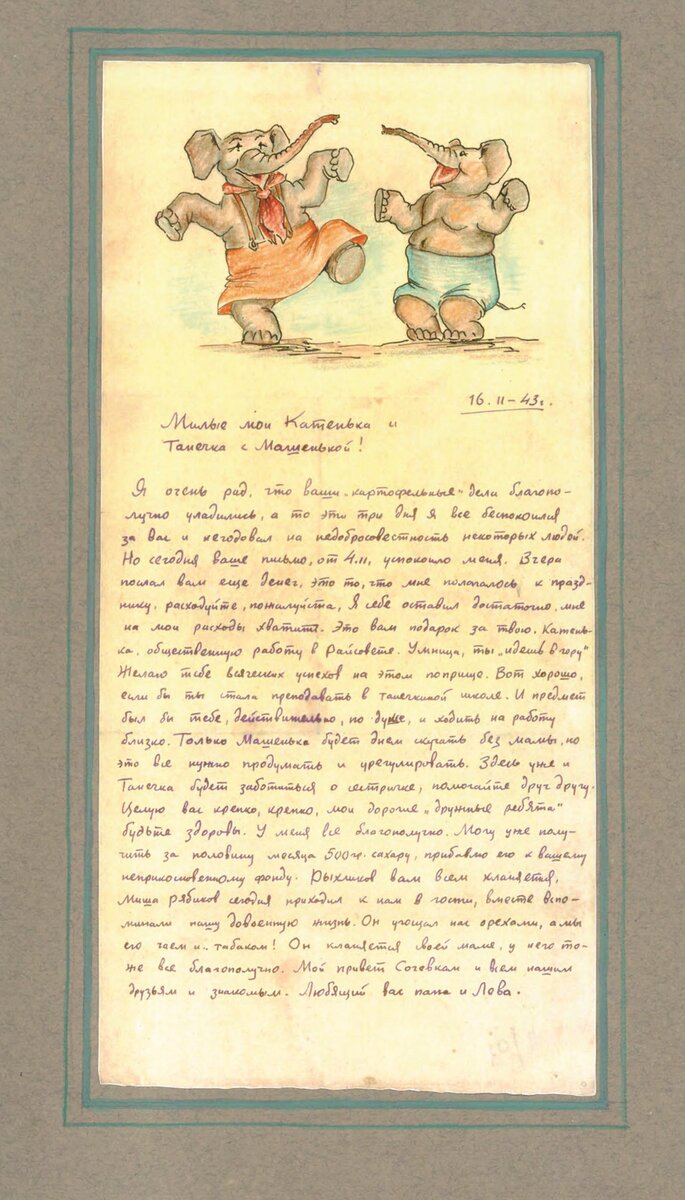 16.11-43г.
Милые мои Катенька и
Танечка с Машенькой!
Я очень рад, что ваши „картофельные" дела благопо-
лучно уладились, а то эти три дня я все беспокоился
за вас и негодовал на недобросовестность некоторых людей.
Но сегодня ваше письмо, от 4.11, успокоило меня. Вчера
послал вам еще денег, это то, что мне полагалось к празд-
нику, расходуйте, пожалуйста, я себе оставил достаточно, мне
на мои расходы хватит. Это вам подарок за твою, Катень-
ка, общественную работу в Райсовете. Умница, ты „идешь в гору"
Желаю тебе всяческих успехов на этом поприще. Вот хорошо,
если бы ты стала преподавать в танечкиной школе. И предмет
был бы тебе, действительно, по душе, и ходить на работу
близко. Только Машенька будет днем скучать без мамы, но
это все нужно продумать и урегулировать. Здесь уже и
Танечка будет заботиться о сестричке, помогайте друг другу.
Целую вас крепко, крепко, мои дорогие „дружные ребята"
будьте здоровы. У меня все благополучно. Могу уже полу-
чить за половину месяца 500гр. сахару, прибавлю его к вашему
неприкосновенному фонду. Рыхликов вам всем кланяется,
Миша Рябиков сегодня приходил к нам в гости, вместе вспо-
минали нашу довоенную жизнь. Он угощал нас орехами, а мы
его чаем и.. табаком! Он кланяется своей маме, у него то-
же все благополучно. Мой привет Согевкам и всем нашим
друзьям и знакомым. Любящий вас папа и Лева.